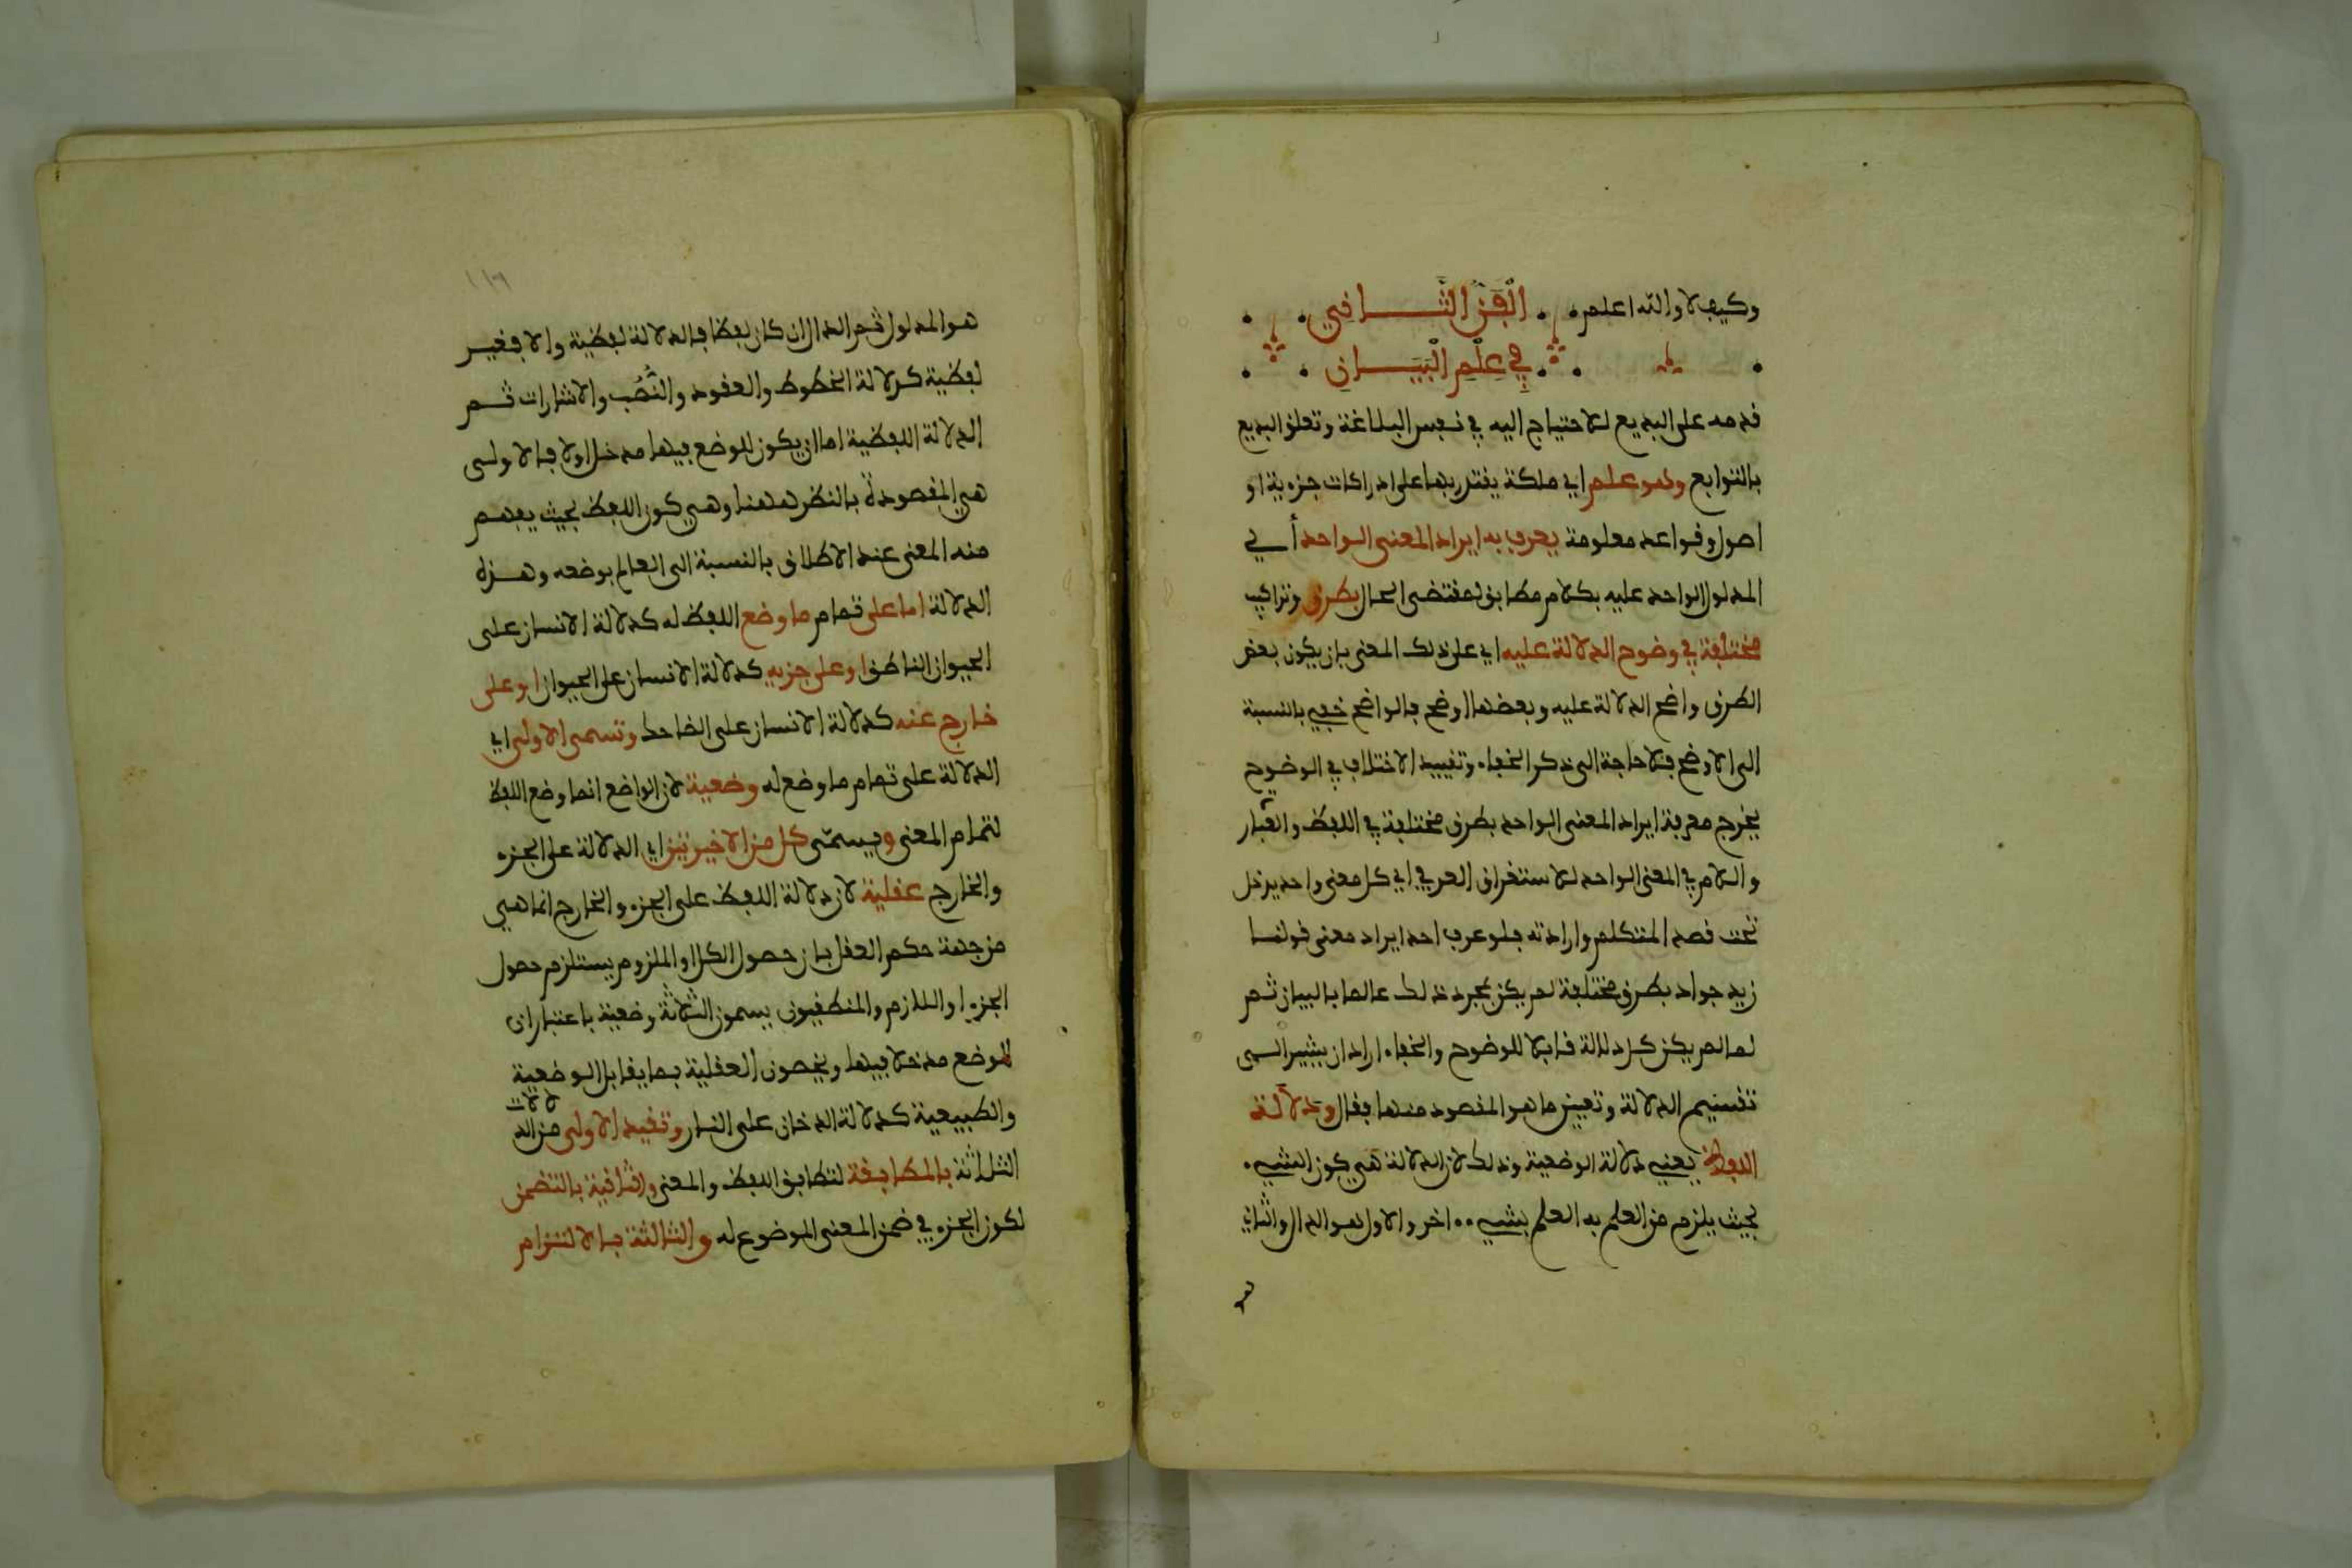 وكيف لا والله اعلم الْفَنّ الثَّانِي
فِي عِلْمِ الْبَيَانِ
قدمه على البديع للاحتياج اليه في نفس البلاغة وتعلق البديع
بالتوابع وهو علم اي ملكة يقتدر بها على ادراكات جزءية او
اصول وقواعد معلومة يعرف به ايراد المعنى الواحد أي
المدلول الواحد عليه بكلام مطابق لمقتضى الحال بطرق وتراكيب
مختلفة في وضوح الدلالة عليه اي على ذلك المعنى بان يكون بعض
الطرق واضح الدلالة عليه وبعضها اوضح فالواضح خفي بالنسبة
الى الاوضح فلا حاجة الى ذكر الخفاء وتقييد الاختلاف في الوضوح
يخرج معرفة ايراد المعنى الواحد بطرق مختلفة في اللفظ والعبار
واللام في المعنى الواحد للاستغراق العرفي اي كل معنى واحد يدخل
تحت قصد المتكلم وارادته فلو عرف احد ايراد معنى قولنا
زيد جواد بطرق مختلفة لم يكن بمجرد ذلك عالما بالبيان ثم
لما لم يكن كل دلالة قابلا للوضوح والخفاء اراد ان يشير الى
تقسيم الدلالة وتعيين ما هو المقصود منها فقال ودلالة
اللفظ يعني دلالة الوضعية وذلك لان الدلالة هي كون الشيء
بحيث يلزم من العلم به العلم بشيء اخر والاول هو الدال والثاني
هو المدلول ثم الدال ان كان لفظا فالدلالة لفظية والا فغير
لفظية كدلالة الخطوط والعقود والنُّصُب والاشارات ثم
الدلالة اللفظية اما ان يكون للوضع فيها مدخل اولا فالاولى
هي المقصودة بالنظر هاهنا وهي كون اللفظ بحيث يفهم
منه المعنى عند الاطلاق بالنسبة الى العالم بوضعه وهذه
الدلالة اما على تمام ما وضع اللفظ له كدلالة الانسان على
الحيوان الناطق او على جزءه كدلالة الانسان على الحيوان او على
خارج عنه كدلالة الانسان على الضاحك وتسمى الاولى اي
الدلالة على تمام ما وضع له وضعية لان الواضع انما وضع اللفظ
لتمام المعنى ويسمّى كل من الاخيرتين اي الدلالة على الجزء
والخارج عقلية لان دلالة اللفظ على الجزء والخارج انما هي
من جهة حكم العقل بان حصول الكل او الملزوم يستلزم حصول
الجزء او اللازم والمنطقيون يسمون الثلاثة وضعية باعتبار ان
للوضع مدخلا فيها ويخصون العقلية بما يقابل الوضعية
والطبيعية كدلالة الدخان على النار وتقيد الاولى من الدلالات
الثلاثة بالمطابقة لتطابق اللفظ والمعنى والثانية بالتضمن
لكون الجزء في ضمن المعنى الموضوع له والثالثة بالالتزام